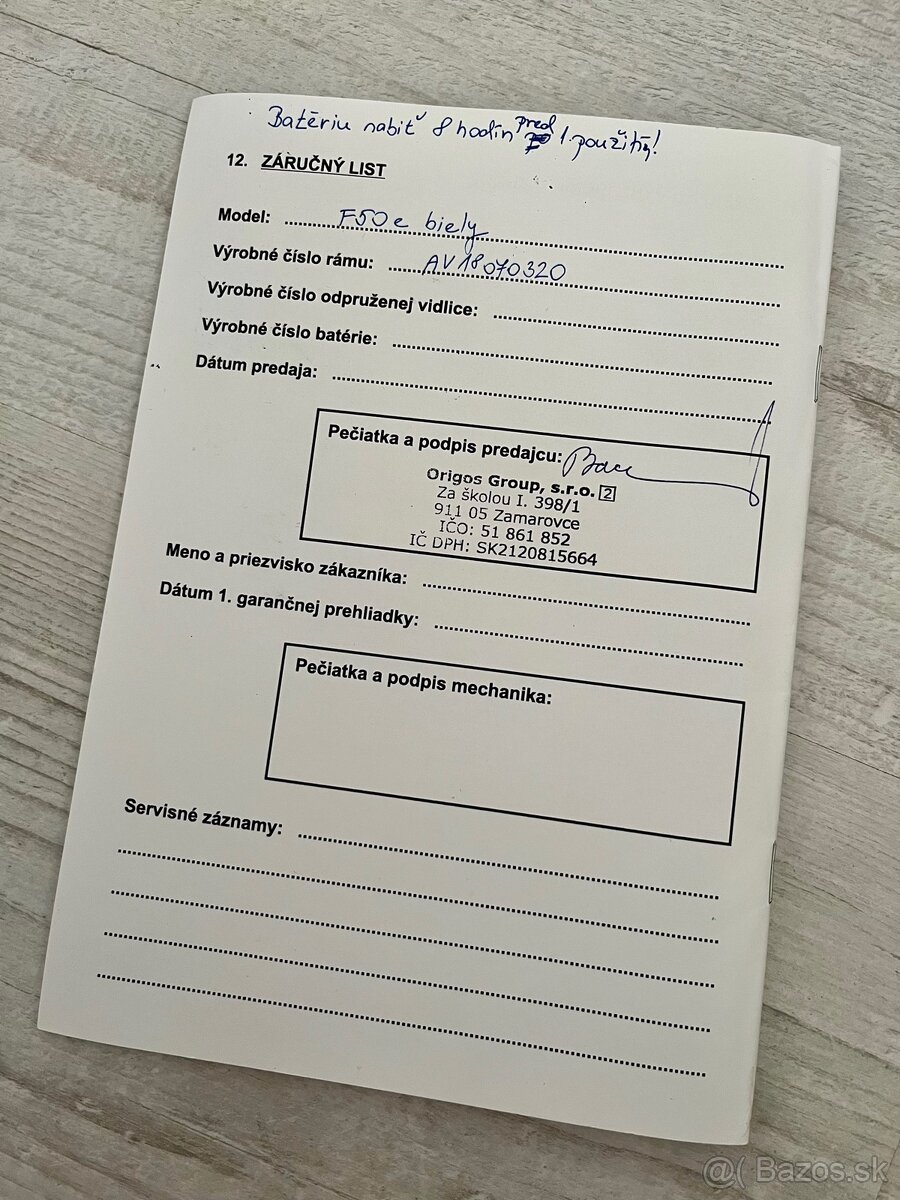 Batériu nabiť 8 hodín pred 1. použitím!
12. ZÁRUČNÝ LIST
Model: F50e biely
Výrobné číslo rámu: AV18070320
Výrobné číslo odpruženej vidlice:
Výrobné číslo batérie:
Dátum predaja:
Pečiatka a podpis predajcu:
Origos Group, s.r.o. 2
Za školou I. 398/1
911 05 Zamarovce
IČO: 51 861 852
IČ DPH: SK2120815664
Meno a priezvisko zákazníka:
Dátum 1. garančnej prehliadky:
Pečiatka a podpis mechanika:
Servisné záznamy:
@( Bazos.sk